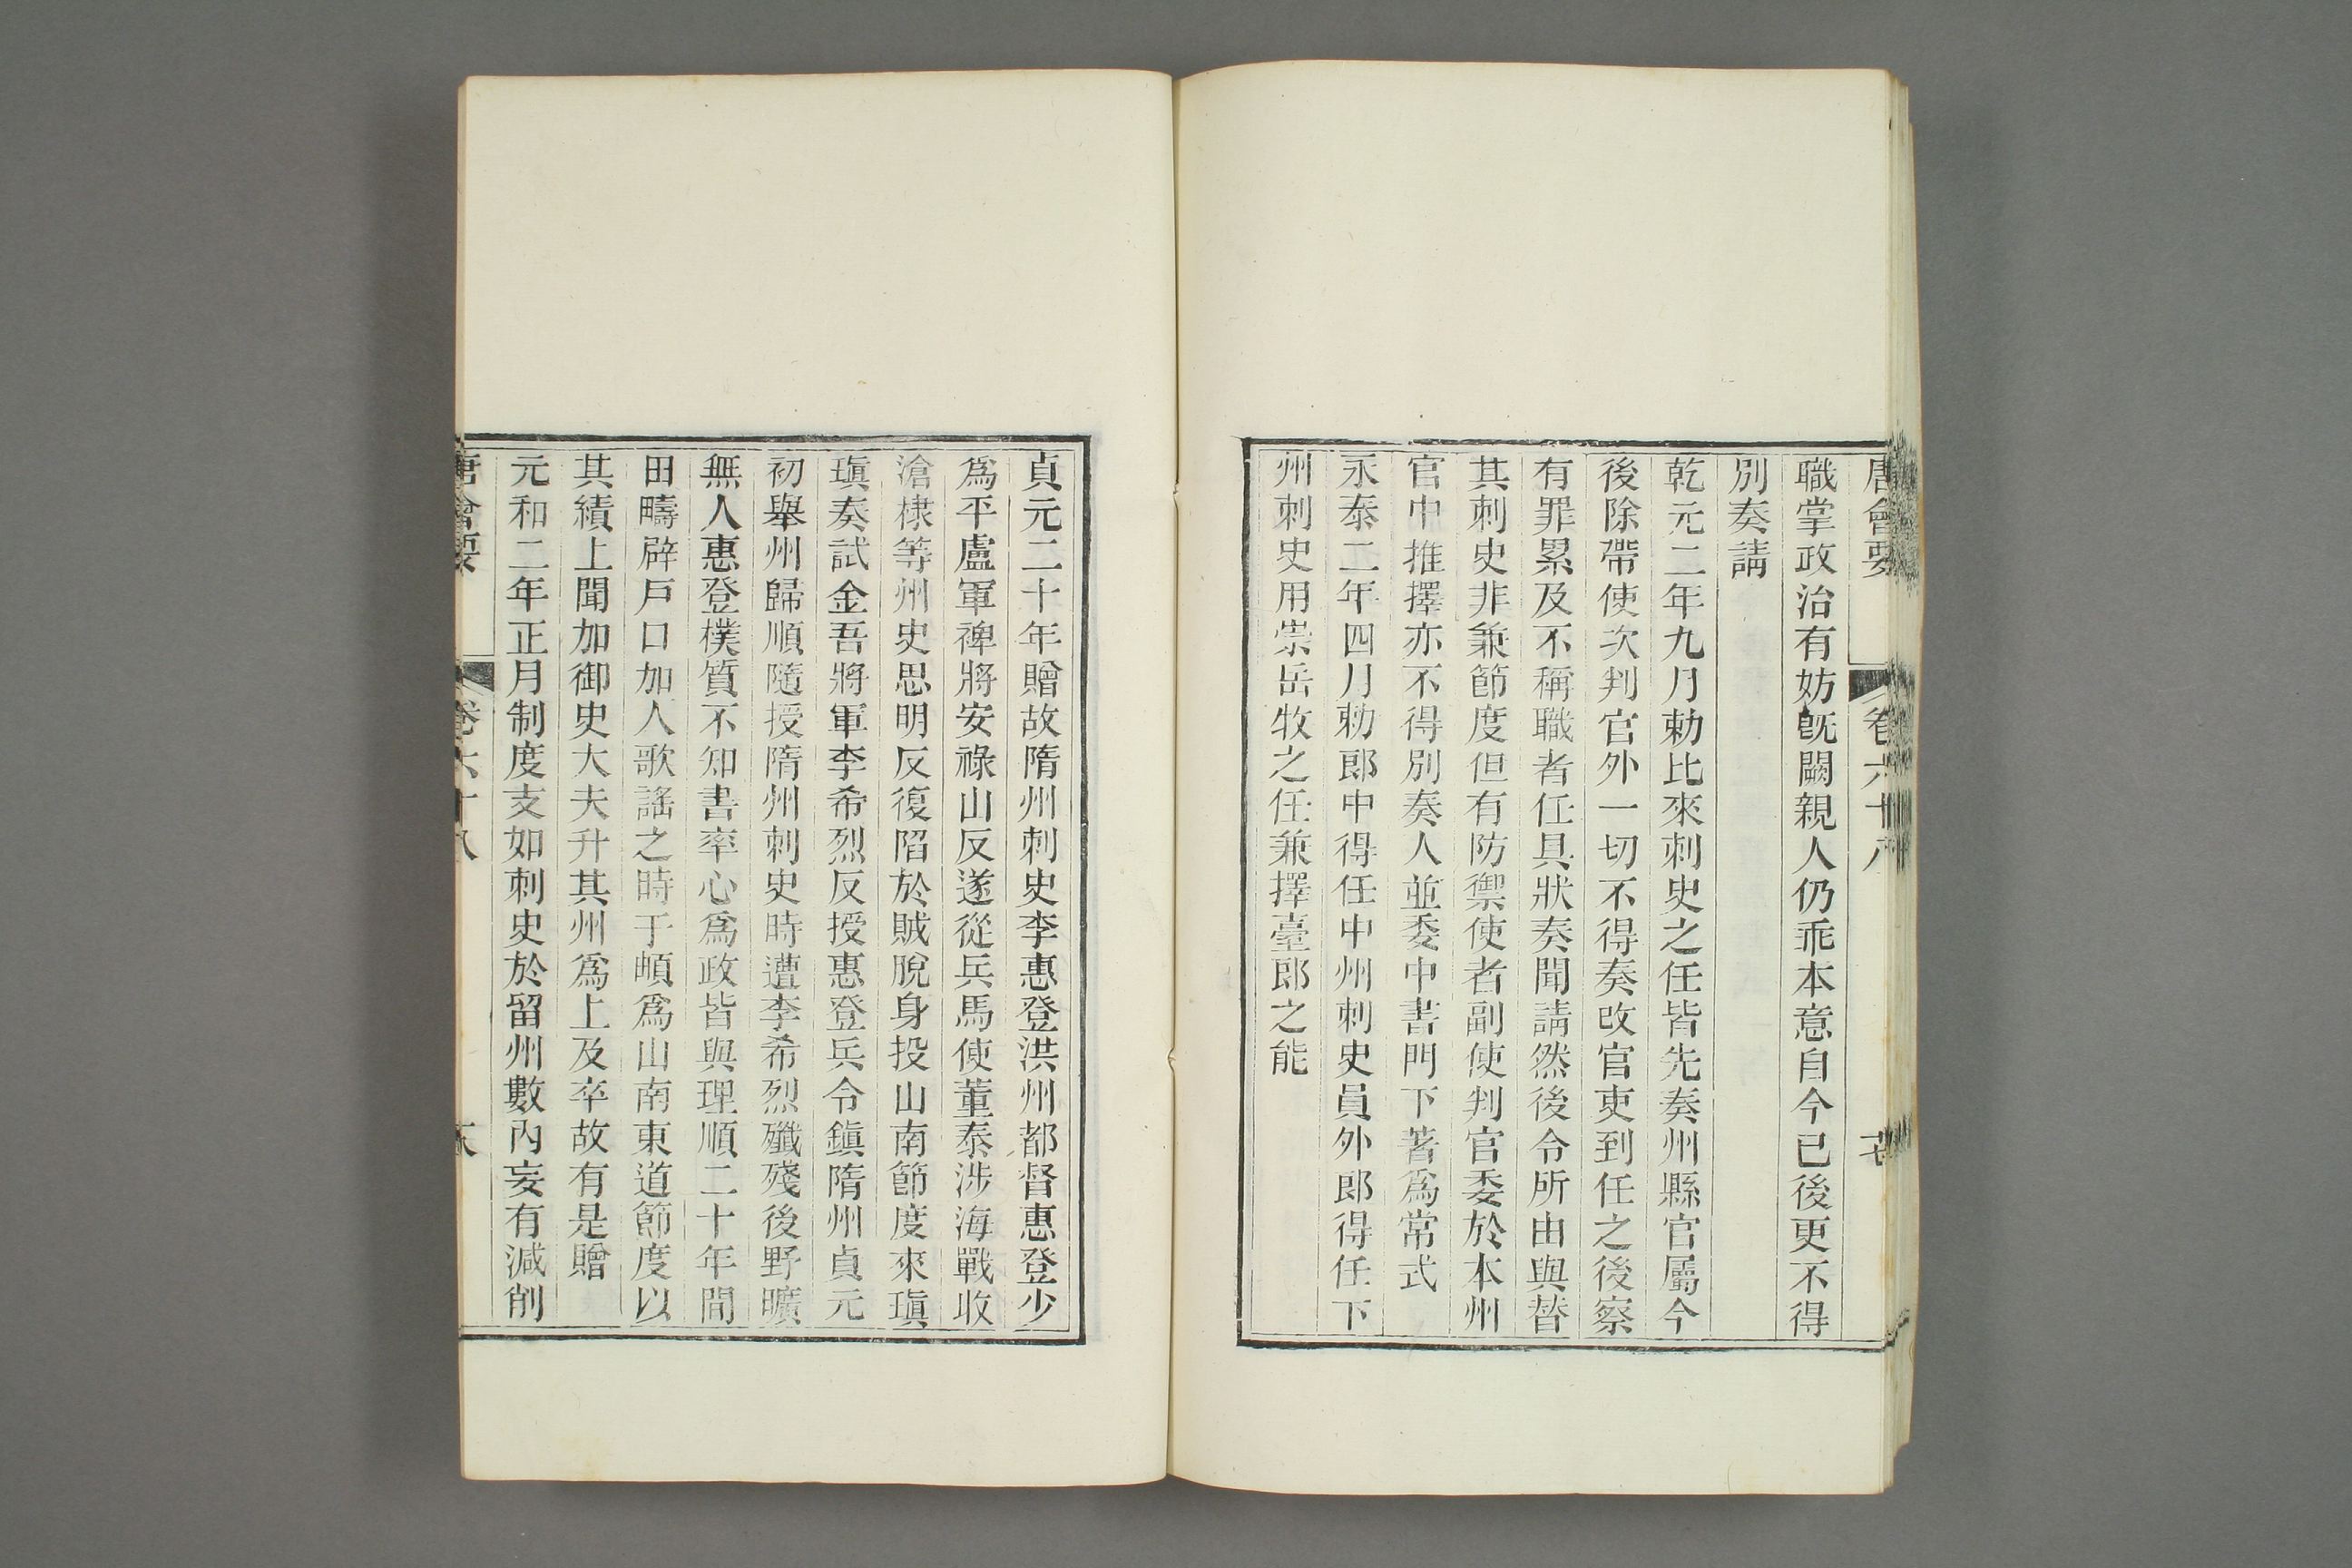 唐會要 卷六十八
職掌政治有妨旣闕親人仍乖本意自今已後更不得
別奏請
乾元二年九月勅比來刺史之任皆先奏州縣官屬今
後除帶使次判官外一切不得奏改官吏到任之後察
有罪累及不稱職者任具狀奏聞請然後令所由與替
其刺史非兼節度但有防禦使者副使判官委於本州
官中推擇亦不得別奏人並委中書門下著爲常式
永泰二年四月勅郎中得任中州刺史員外郎得任下
州刺史用崇岳牧之任兼擇臺郎之能
貞元二十年贈故隋州刺史李惠登洪州都督惠登少
爲平盧軍裨將安祿山反遂從兵馬使董泰涉海戰收
滄棣等州史思明反復陷於賊脫身投山南節度來瑱
瑱奏試金吾將軍李希烈反授惠登兵令鎭隋州貞元
初舉州歸順隨授隋州刺史時遭李希烈殲殘後野曠
無人惠登樸質不知書率心爲政皆與理順二十年間
田疇辟戶口加人歌謠之時于頔爲山南東道節度以
其績上聞加御史大夫升其州爲上及卒故有是贈
元和二年正月制度支如刺史於留州數內妄有減削
唐會要 卷六十八